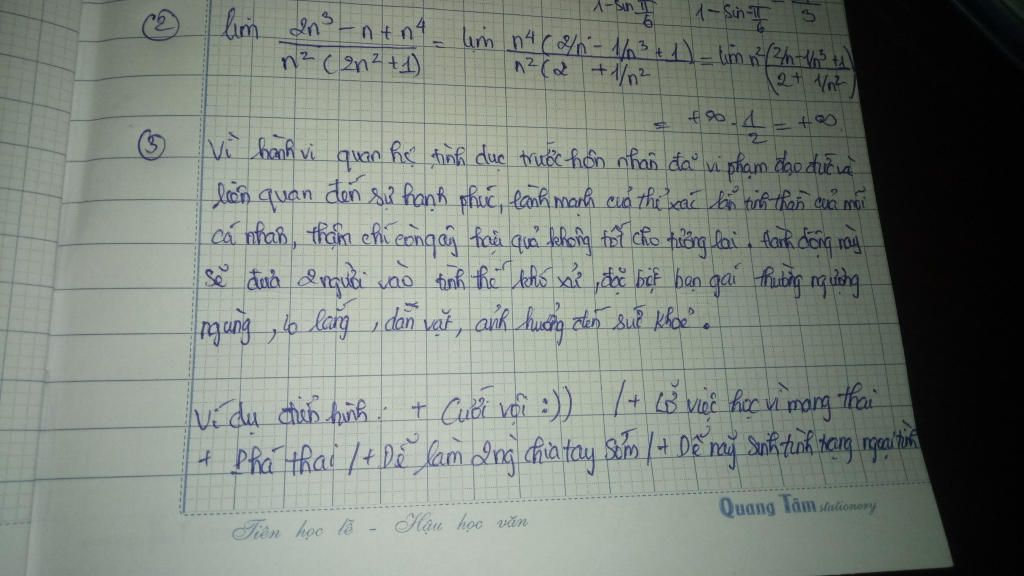 1-sin π/6 1-sin π/6 3
② lim (2n³ - n + n⁴)/(n²(2n²+1)) = lim n⁴(2/n - 1/n³ + 1)/n²(2 + 1/n² = lim n²(2/n - 1/n³ + 1)/(2 + 1/n²)
= +∞ · 1/2 = +∞.
③ Vì hành vi quan hệ tình dục trước hôn nhân đã vi phạm đạo đức và
liên quan đến sự hạnh phúc, lành mạnh của thể xác lẫn tinh thần của mỗi
cá nhân, thậm chí còn gây hậu quả không tốt cho tương lai. Hành động này
sẽ đưa 2 người vào tình thế khó xử, đặc biệt bạn gái thường ngượng
ngùng, lo lắng, dằn vặt, ảnh hưởng đến sức khoẻ.
Ví dụ điển hình: + Cưới vội :)) / + Lỡ việc học vì mang thai
+ Phá thai / + Dễ làm 2 ng chia tay sớm / + Dễ nảy sinh tình trạng ngoại tình
Quang Tâm stationery
Tiên học lễ - Hậu học văn